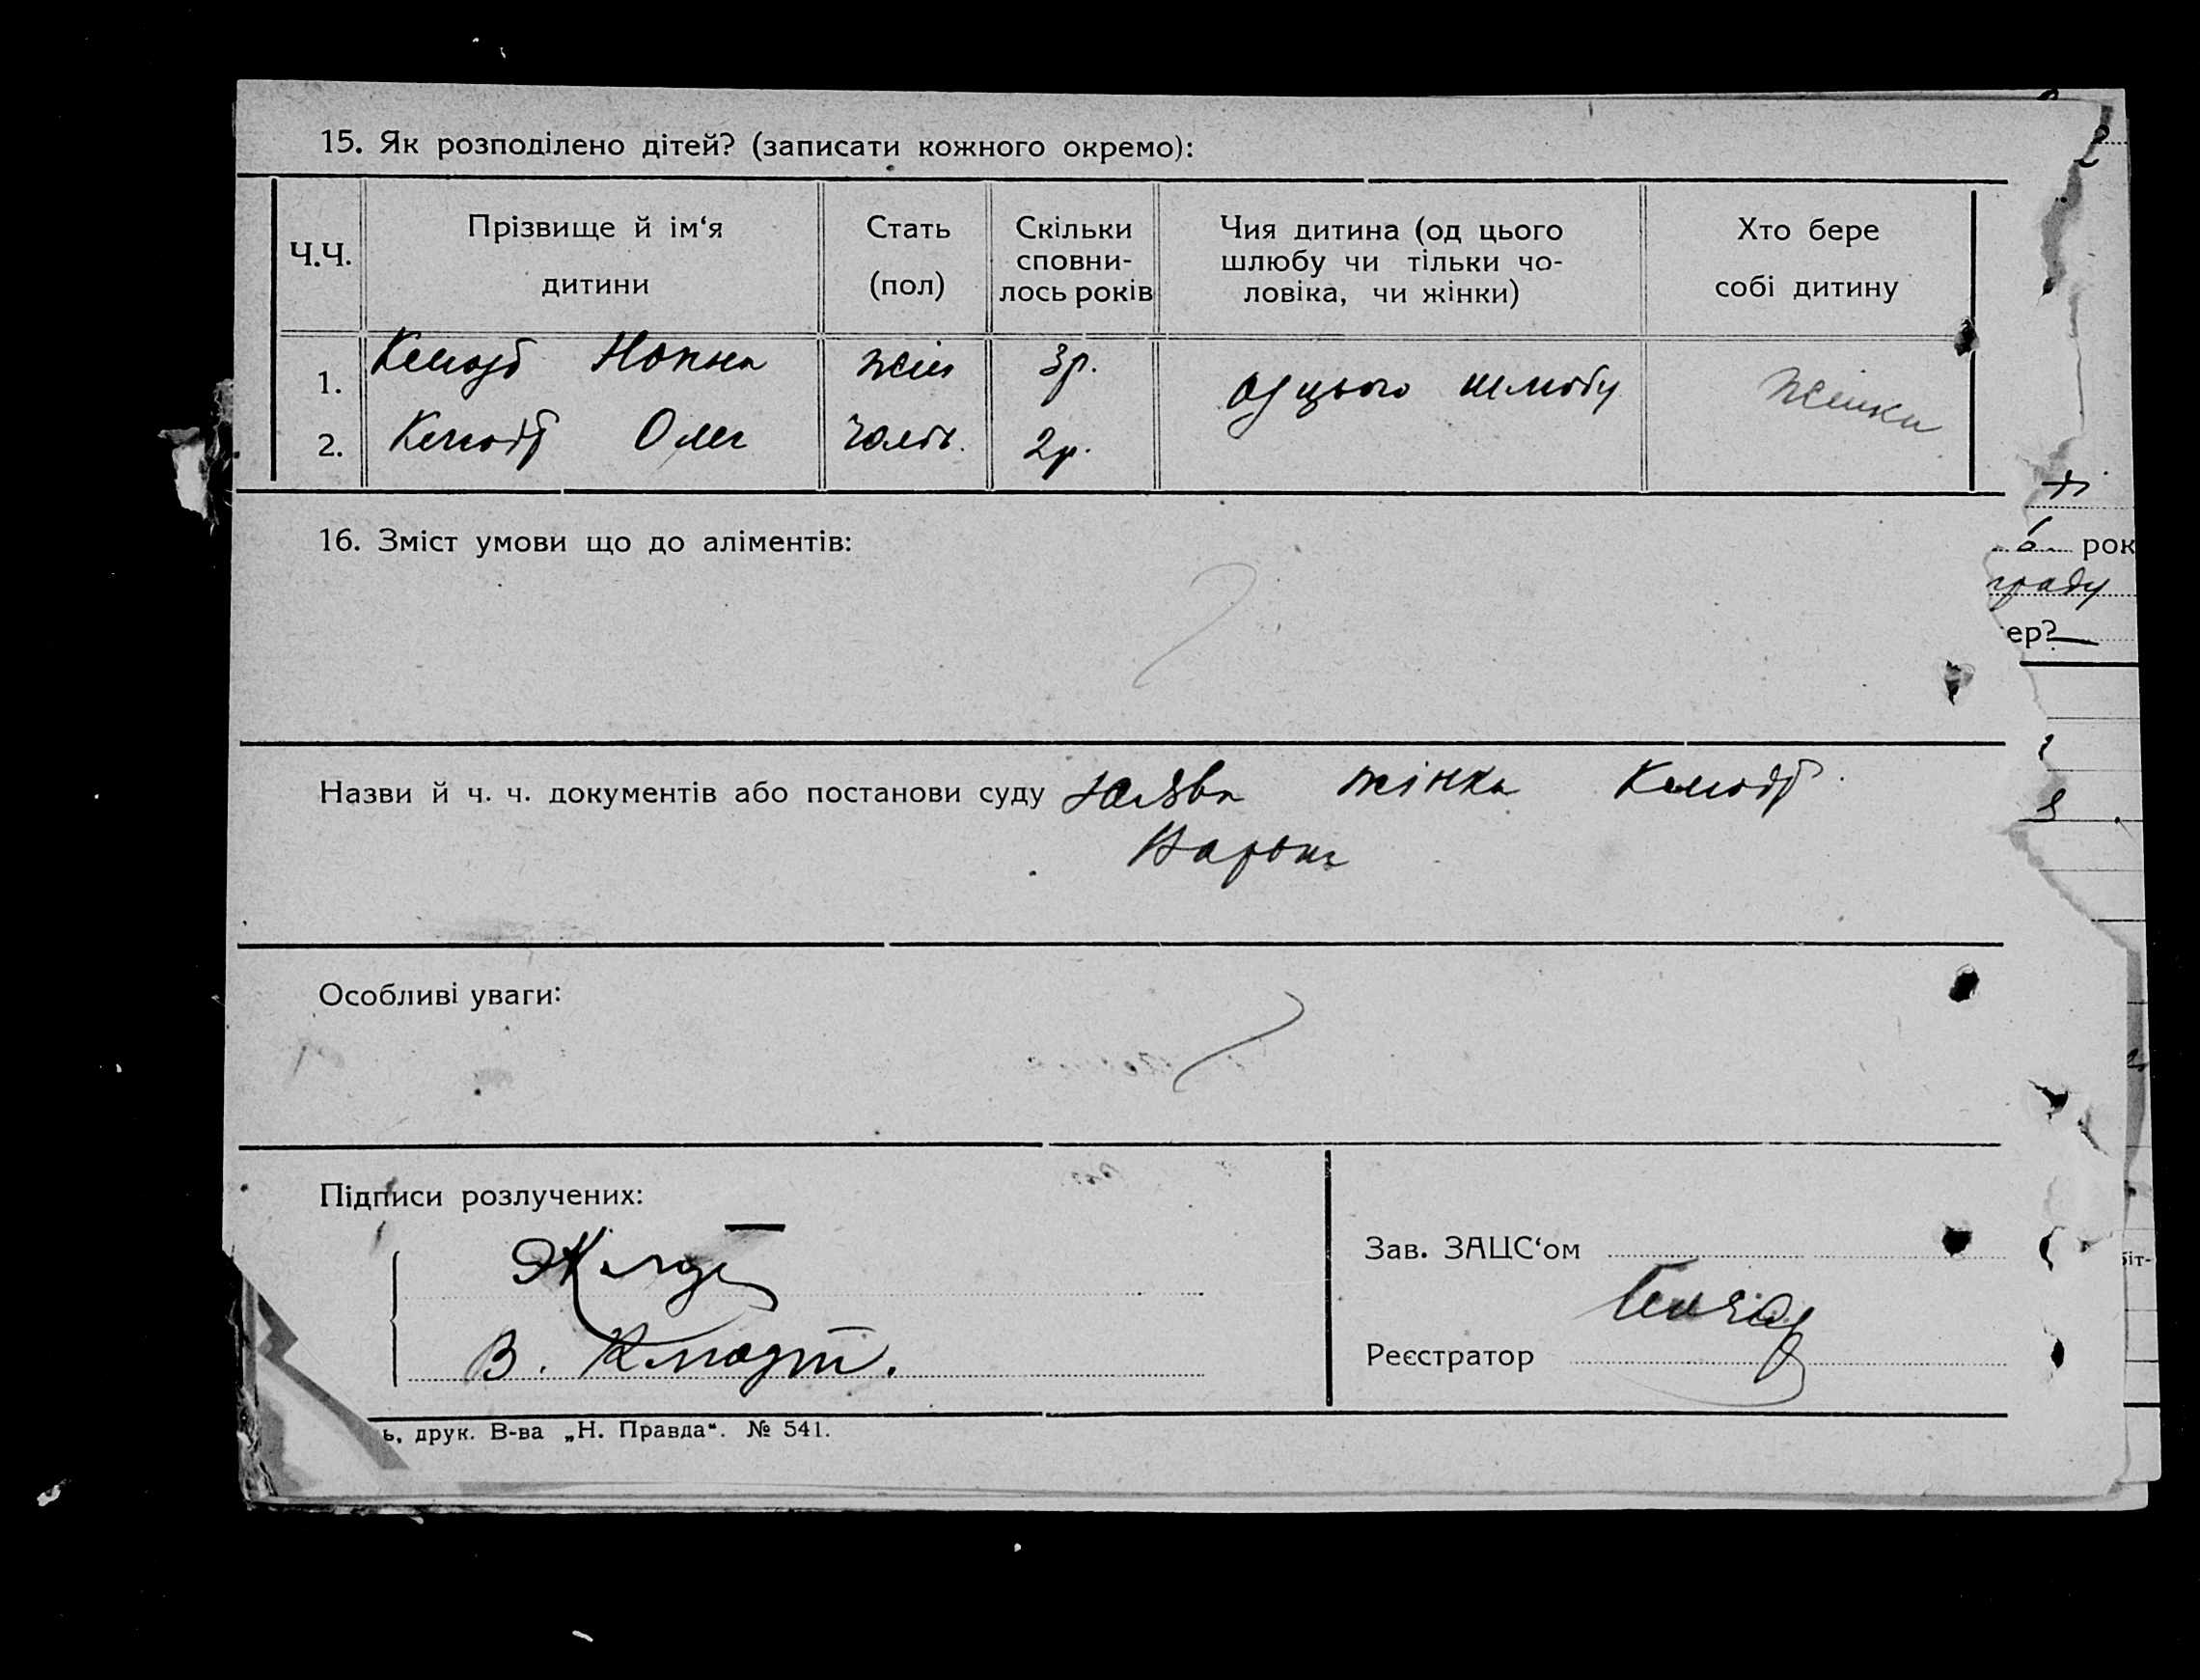 15. Як розподілено дітей? (записати кожного окремо):
Ч.Ч.
Прізвище й ім‘я
дитини
Стать
(пол)
Скільки
сповни-
лось років
Чия дитина (од цього
шлюбу чи тільки чо-
ловіка, чи жінки)
Хто бере
собі дитину
1. жін 3р. од цього шлюбу
2. Олег 2р.
16. Зміст умови що до аліментів:
Назви й ч. ч. документів або постанови суду Заява жінки
Особливі уваги:
Підписи розлучених:
В. Клюдт.
Зав. ЗАЦС‘ом
Реєстратор
ь, друк. В-ва „Н. Правда“. № 541.
рок
граду
ер?
біт-